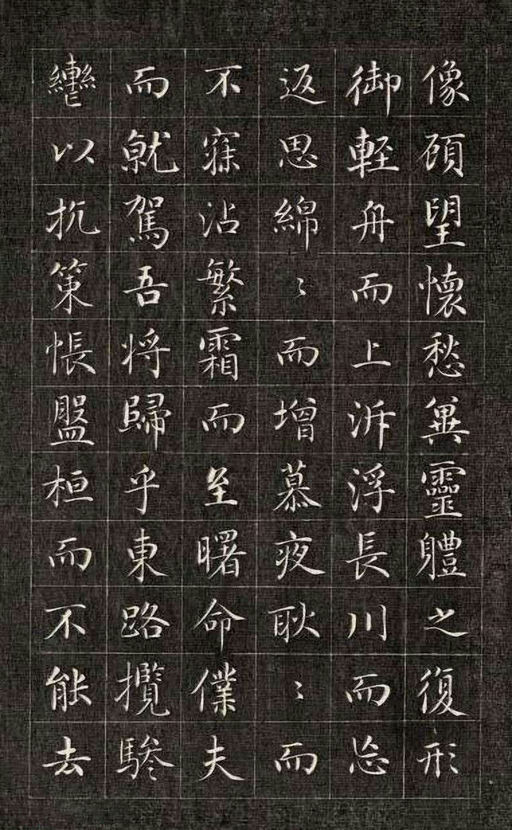 像顧望懷愁兾靈軆之復形
御輕舟而上泝浮長川而忘
返思綿〻而增慕夜耿〻而
不寐沾繁霜而至曙命僕夫
而就駕吾将歸乎東路攬騑
轡以抗策悵盤桓而不能去